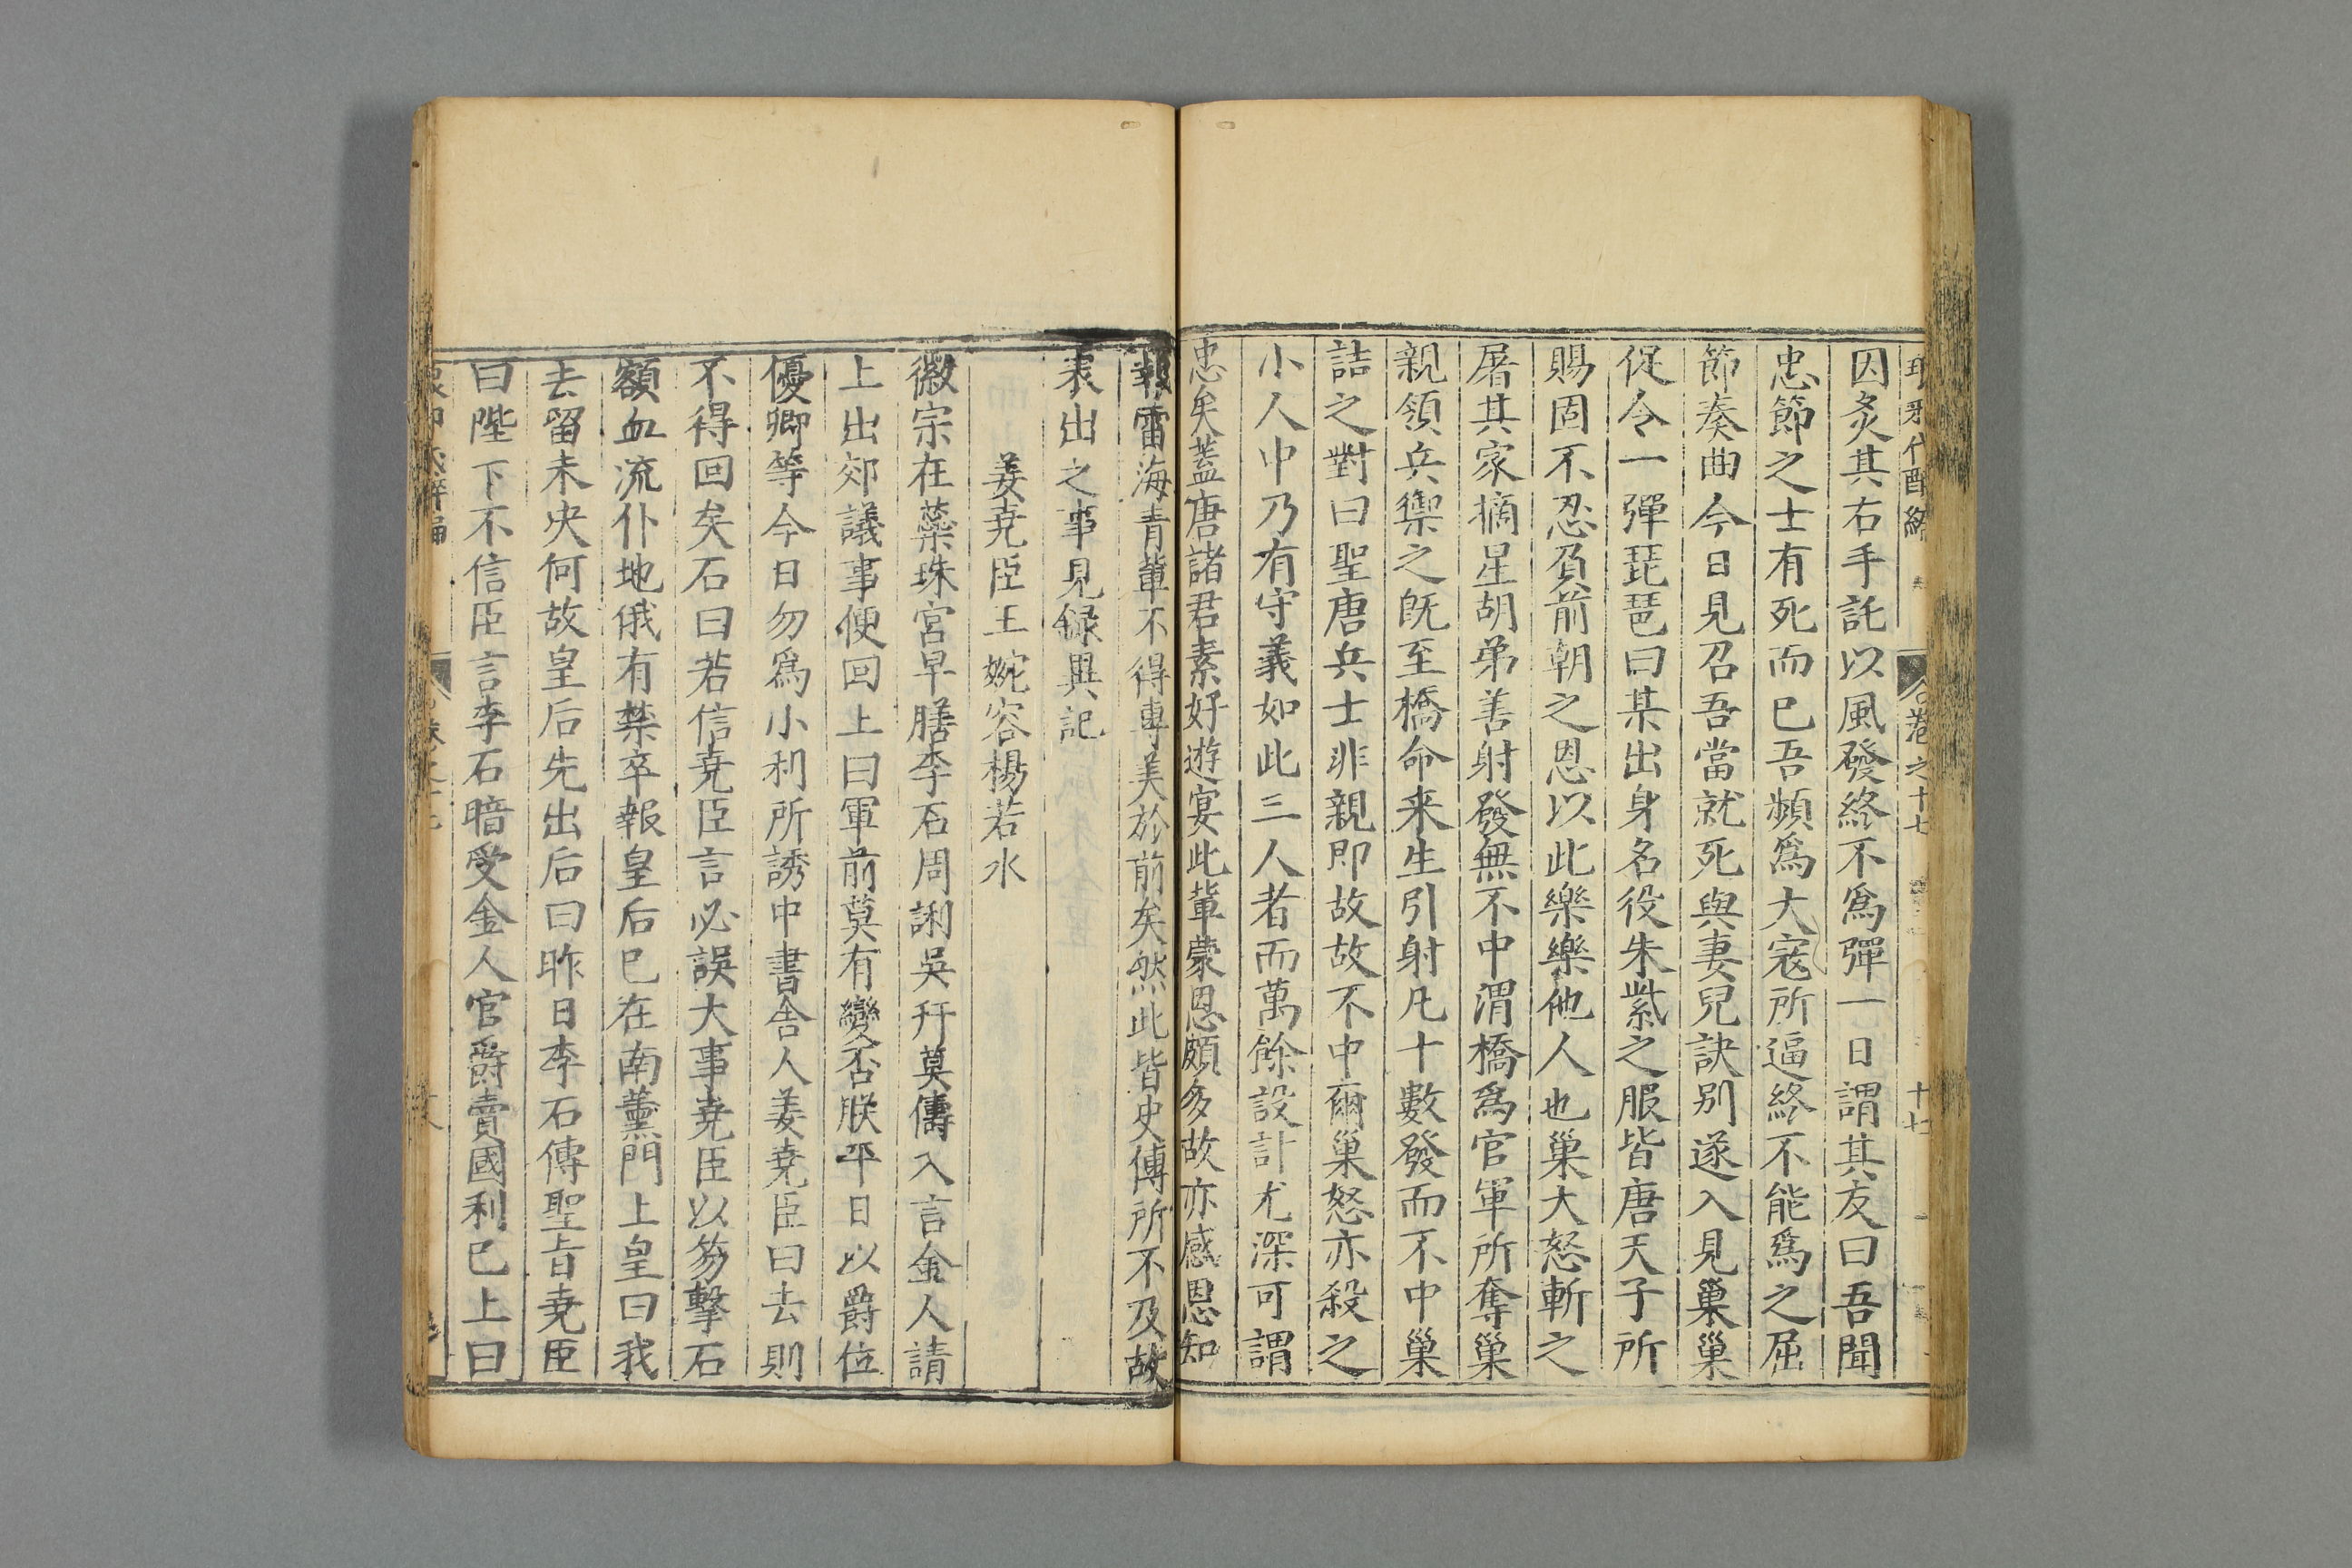 卷之十七
十七
因炙其右手託以風發終不爲彈一日謂其友曰吾聞
忠節之士有死而已吾頻爲大寇所逼終不能爲之屈
節奏曲今日見召吾當就死與妻兒訣别遂入見巢巢
促令一彈琵琶曰某出身名役朱紫之服皆唐天子所
賜固不忍負前朝之恩以此樂樂他人也巢大怒斬之
屠其家摘星胡弟善射發無不中渭橋爲官軍所奪巢
親領兵禦之旣至橋命来生引射凡十數發而不中巢
詰之對曰聖唐兵士非親即故故不中爾巢怒亦殺之
小人中乃有守義如此三人者而萬餘設計尤深可謂
忠矣蓋唐諸君素好遊宴此輩蒙恩頗多故亦感恩知
報雷海青輩不得專美於前矣然此皆史傳所不及故
表出之事見録異記
姜尭臣王婉容楊若水
徽宗在蘂珠宮早膳李石周訓吳幵莫儔入言金人請
上出郊議事便回上曰軍前莫有變否朕平日以爵位
優卿等今日勿爲小利所誘中書舎人姜尭臣曰去則
不得回矣石曰若信尭臣言必誤大事尭臣以笏擊石
額血流仆地俄有禁卒報皇后已在南薰門上皇曰我
去留未决何故皇后先出后曰昨日李石傳聖旨尭臣
曰陛下不信臣言李石暗受金人官爵賣國利已上曰